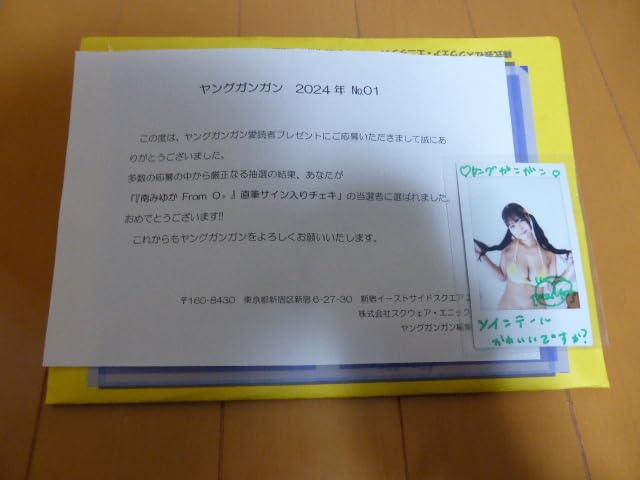 株式会社スクウェア・エニックス
ヤングガンガン 2024年 №01
この度は、ヤングガンガン愛読者プレゼントにご応募いただきまして誠にあ
りがとうございました。
多数の応募の中から厳正なる抽選の結果、あなたが
「『南みゆか From O。』直筆サイン入りチェキ」の当選者に選ばれました。
おめでとうございます!!
これからもヤングガンガンをよろしくお願いいたします。
〒160-8430 東京都新宿区新宿6-27-30 新宿イーストサイドスクエア
株式会社スクウェア・エニック
ヤングガンガン編集
♡ヤングガンガン♡
ツインテール